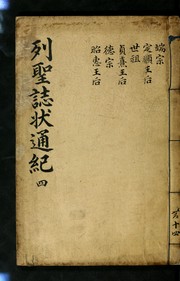 端宗
定順王后
世祖
貞熹王后
德宗
昭惠王后
列聖誌状通紀 四